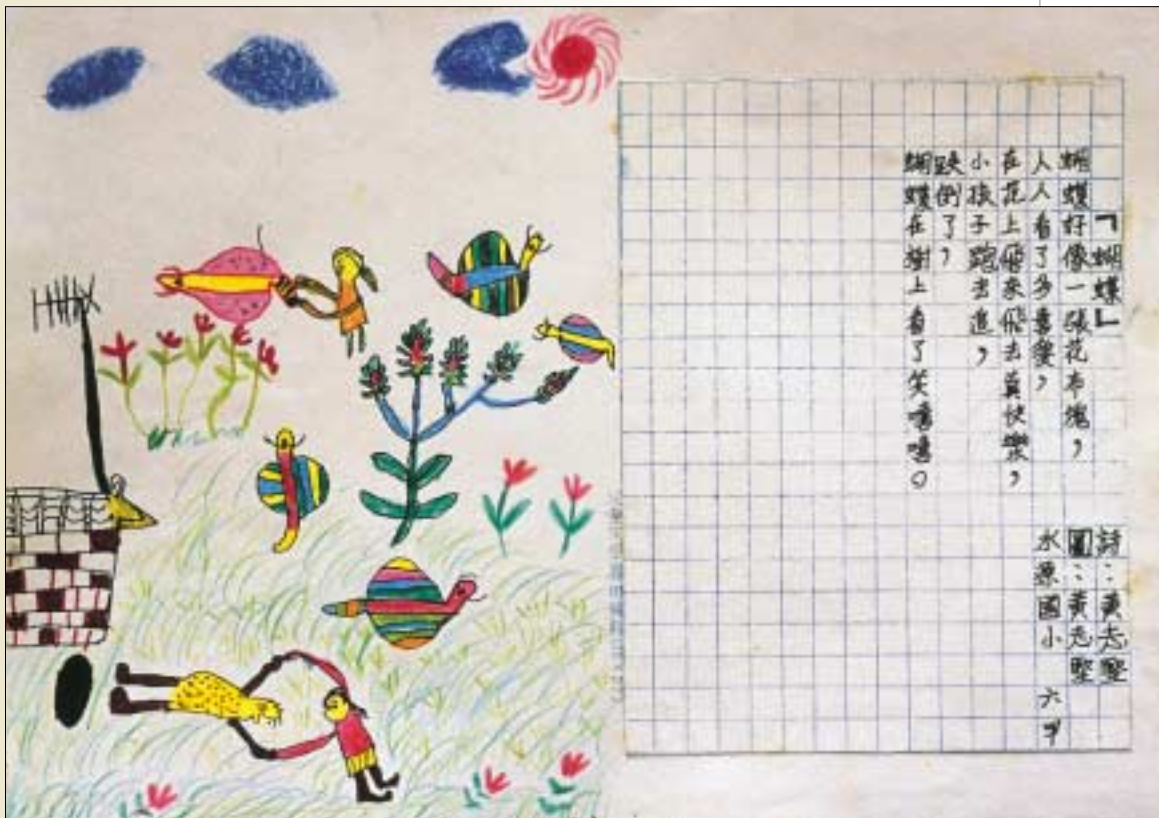 「蝴蝶」
蝴蝶好像一張花布塊，
人人看了多喜愛，
在花上飛來飛去真快樂，
小孩子跑去追，
跌倒了，
蝴蝶在樹上看了笑嘻嘻。
詩：黃志堅
圖：黃志堅
水源國小 六甲